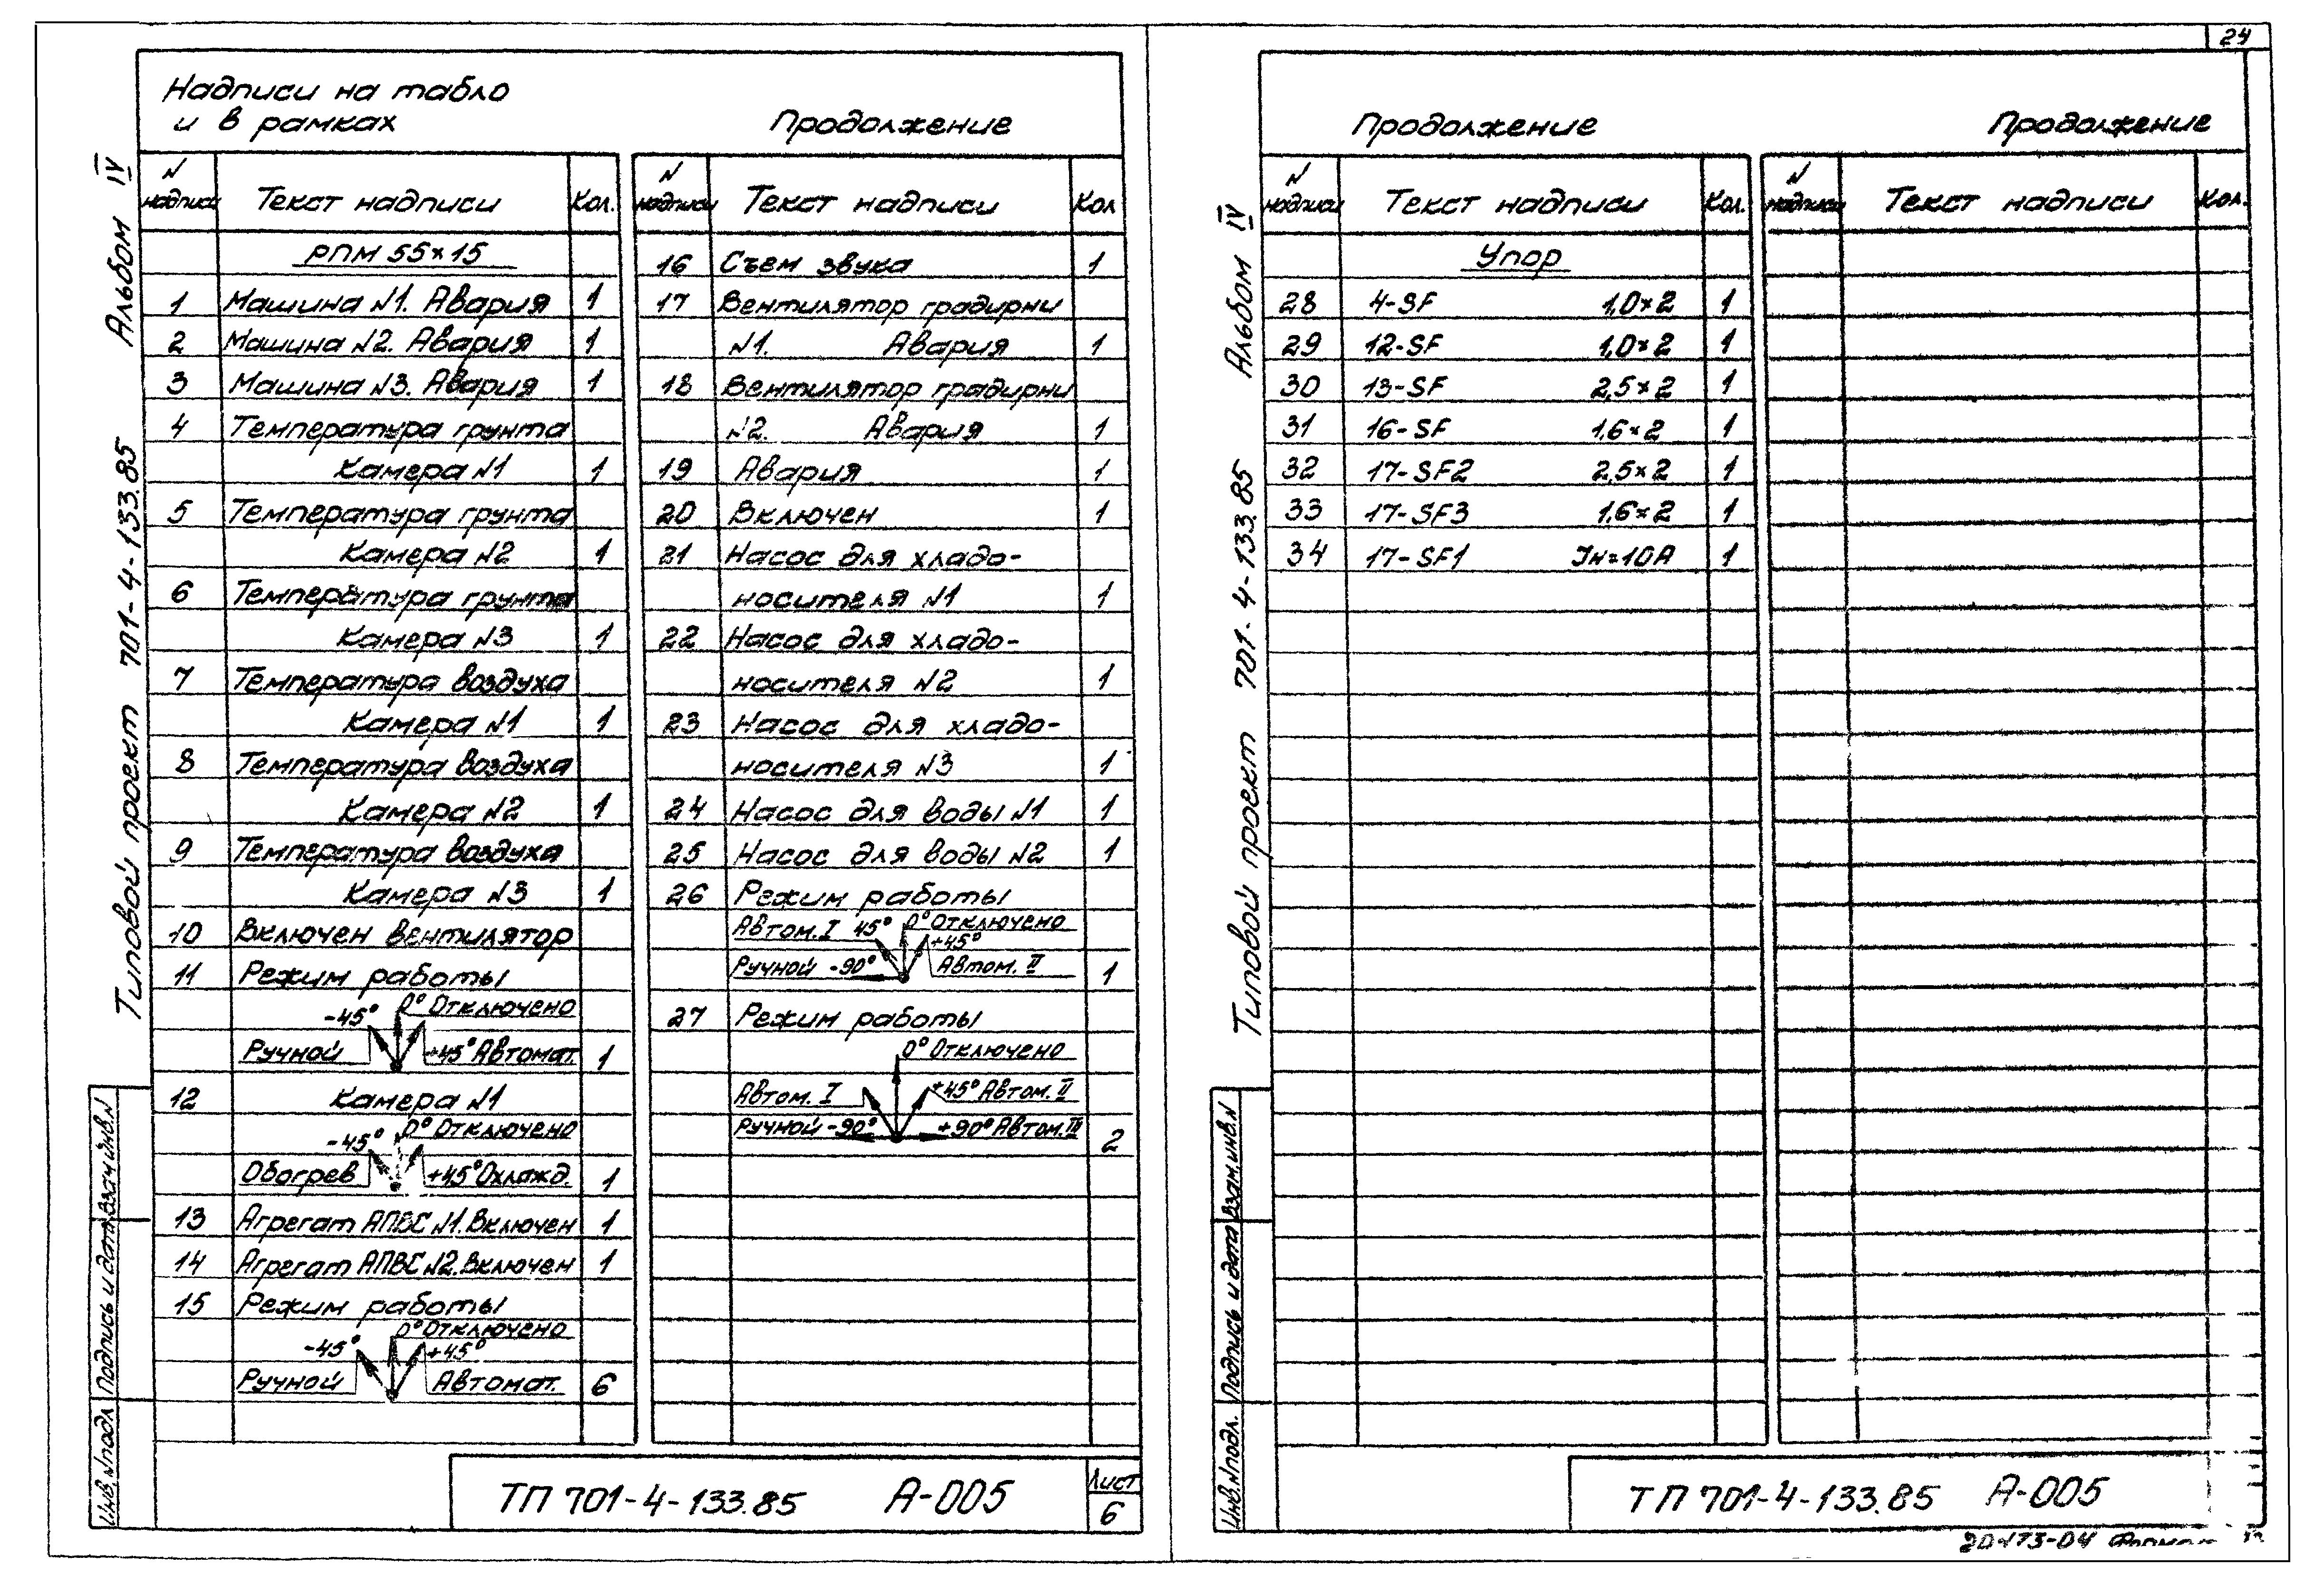 24
Надписи на табло
и в рамках
Продолжение
N надписи Текст надписи Кол.
РПМ 55×15
1 Машина N1. Авария 1
2 Машина N2. Авария 1
3 Машина N3. Авария 1
4 Температура грунта
Камера N1 1
5 Температура грунта
Камера N2 1
6 Температура грунта
Камера N3 1
7 Температура воздуха
Камера N1 1
8 Температура воздуха
Камера N2 1
9 Температура воздуха
Камера N3 1
10 Включен вентилятор
11 Режим работы
-45° 0° Отключено
Ручной +45° Автомат. 1
12 Камера N1
-45° 0° Отключено
Обогрев +45° Охлажд. 1
13 Агрегат АПВС N1. Включен 1
14 Агрегат АПВС N2. Включен 1
15 Режим работы
0° Отключено
-45° +45°
Ручной Автомат. 6
N надписи Текст надписи Кол
16 Съем звука 1
17 Вентилятор градирни
N1. Авария 1
18 Вентилятор градирни
N2. Авария 1
19 Авария 1
20 Включен 1
21 Насос для хладо-
носителя N1 1
22 Насос для хладо-
носителя N2 1
23 Насос для хладо-
носителя N3 1
24 Насос для воды N1 1
25 Насос для воды N2 1
26 Режим работы
Автом. I 45° 0° Отключено
+45°
Ручной -90° Автом. II 1
27 Режим работы
0° Отключено
Автом. I +45° Автом. II
Ручной -90° +90° Автом. III 2
Альбом IV
Типовой проект 701-4-133.85
Взам. инв. N
Подпись и дата
Инв. N подл
ТП 701-4-133.85 А-005
Лист
6
Продолжение
Продолжение
N надписи Текст надписи Кол.
Упор
28 4-SF 1,0×2 1
29 12-SF 1,0×2 1
30 13-SF 2,5×2 1
31 16-SF 1,6×2 1
32 17-SF2 2,5×2 1
33 17-SF3 1,6×2 1
34 17-SF1 Iн=10А 1
N надписи Текст надписи Кол.
Альбом IV
Типовой проект 701-4-133.85
Взам. инв. N
Подпись и дата
Инв. N подл.
ТП 701-4-133.85 А-005
20173-04